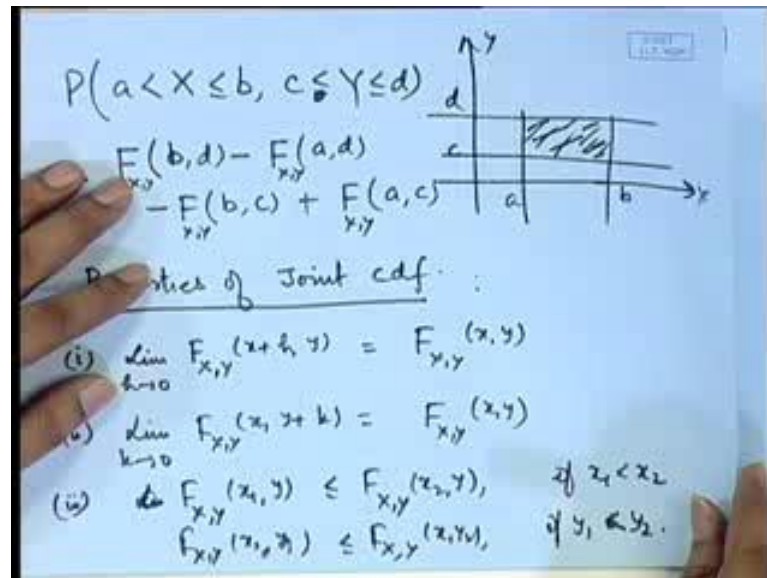 P(a < X ≤ b, c ≤ Y ≤ d)
F_{X,Y}(b,d) − F_{X,Y}(a,d)
− F_{X,Y}(b,c) + F_{X,Y}(a,c)
y
d
c
a
b
x
of Joint cdf :
(i) Lim h→0 F_{X,Y}(x+h, y) = F_{X,Y}(x,y)
Lim k→0 F_{X,Y}(x, y+k) = F_{X,Y}(x,y)
(iii) F_{X,Y}(x₁,y) ≤ F_{X,Y}(x₂,y), if x₁ < x₂
F_{X,Y}(x, y₁) ≤ F_{X,Y}(x,y₂), if y₁ < y₂.